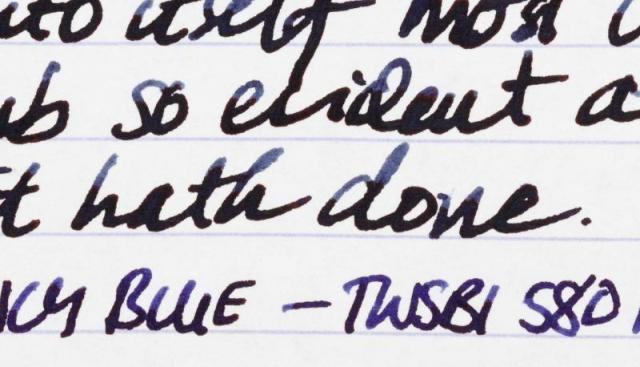 itself most
so evident a
hath done.
BLUE – TWSBI 580